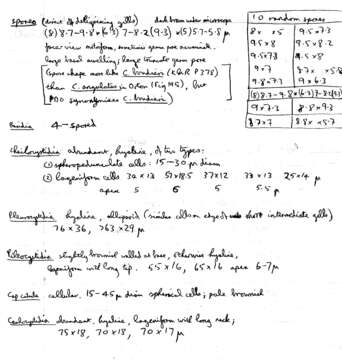 spores (side & collapsing gills) dark brown under microscope
(8) 8.7-9.8 × (6.3) 7-8.2 (9.3) × (5) 5.7-5.8 μ
face view mitriform, sometimes germ pore acuminate.
large basal swelling; large truncate germ pore
Spore shape more like C. bondiern (K&R P378)
than C. angulatus in Orton (Fig 145), but
PDO synonymises C. bondiern
10 random spores
8 × × 5 9.5 × 7.3
9.5 × 8 9.5 × 8.2
9.5 × 7.8 9.5 × 8
× 7 8.7 × × 5.8
9.8 × 7.3 9 × 6.3
(8) 8.7-9.8 × (6.3) 7-8.2 (9.3)
9 × 7.3 8.8 × 9.3
8.7 × 7 8.8 × × 5.7
Basidia 4-spored
Cheilocystidia abundant, hyaline, of two types:
(1) spheropedunculate cells: 15-30 μ diam
(2) lageniform cells 32 × 13 57 × 18.5 37 × 12 33 × 13 25 × 14 μ
apex 5 6 5 5.5 μ
Pleurocystidia hyaline, ellipsoid (similar cells on edge of short intermediate gills)
76 × 36, >63 × 29 μ
Pileocystidia slightly brownish walled at base, otherwise hyaline,
lageniform with long tip. 55 × 16, 65 × 16 apex 6-7 μ
Cap cuticle cellular. 15-45 μ diam spherical cells; pale brownish
Caulocystidia abundant, hyaline, lageniform with long neck;
75 × 18, 70 × 18, 70 × 17 μ